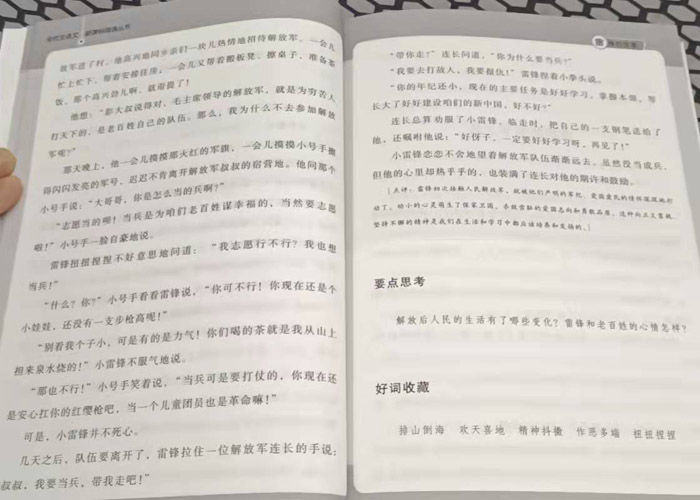 学生语文·新课标阅读丛书
放军进了村，他高兴地同乡亲们一块儿热情地招待解放军，一会儿
忙上忙下，帮着安排住房；一会儿又帮着搬板凳、擦桌子，准备茶
饭。那个高兴劲儿啊，就甭提了！
他想：“彭大叔说得对，毛主席领导的解放军，就是为穷苦人
打天下的，是老百姓自己的队伍。那么，我为什么不去参加解放
军呢？”
那天晚上，他一会儿摸摸那火红的军旗，一会儿摸摸小号手擦
得闪闪发亮的军号，迟迟不肯离开解放军叔叔的宿营地。他问那个
小号手说：“大哥哥，你是怎么当的兵啊？”
“志愿当的呗！当兵是为咱们老百姓谋幸福的，当然要志愿
啦！”小号手一脸自豪地说。
雷锋扭扭捏捏不好意思地问道：“我志愿行不行？我也想
当兵！”
“什么？你？”小号手看看雷锋说，“你可不行！你现在还是个
小娃娃，还没有一支步枪高呢！”
“别看我个子小，可是有的是力气！你们喝的茶就是我从山上
担来泉水烧的！”小雷锋不服气地说。
“那也不行！”小号手笑着说，“当兵可是要打仗的，你现在还
是安心扛你的红缨枪吧，当一个儿童团员也是革命嘛！”
可是，小雷锋并不死心。
几天之后，队伍要离开了，雷锋拉住一位解放军连长的手说：
叔叔，我要当兵，带我走吧！”
“带你走？”连长问道，“你为什么要当兵？”
“我要去打敌人，我要报仇！”雷锋捏着小拳头说。
“你的年纪还小，现在的主要任务是好好学习，掌握本领，等
长大了好好建设咱们的新中国，好不好？”
连长总算劝服了小雷锋，临走时，把自己的一支钢笔送给了
他，还嘱咐他说：“好伢子，一定要好好学习呀，再见了！”
小雷锋恋恋不舍地望着解放军队伍渐渐远去。虽然没当成兵，
但他的心里却热乎乎的，也装满了连长对他的期许和鼓励。
要点思考
解放后人民的生活有了哪些变化？雷锋和老百姓的心情怎样？
好词收藏
排山倒海 欢天喜地 精神抖擞 作恶多端 扭扭捏捏